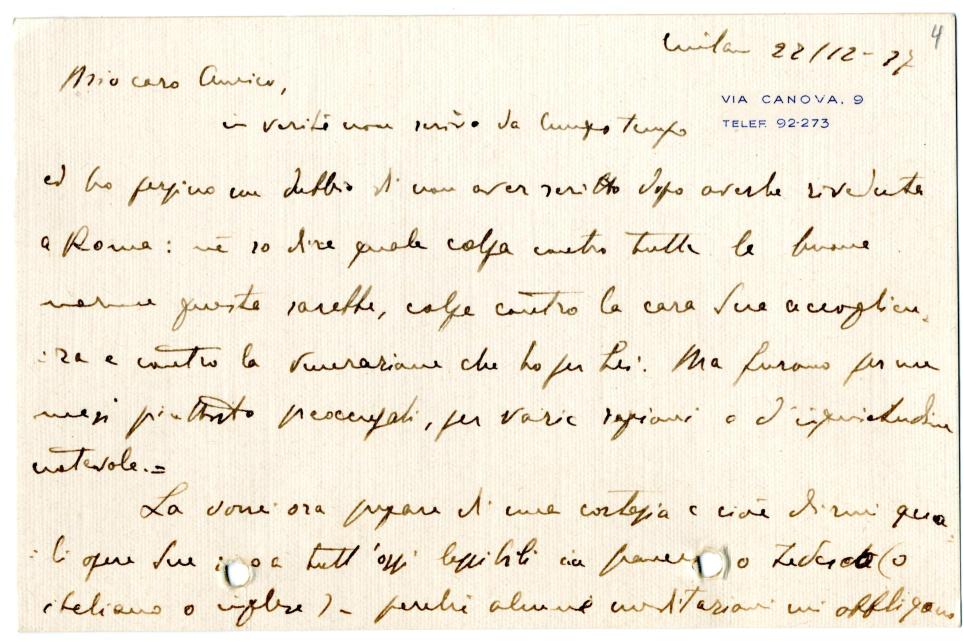 4
Milan 22/12-37
VIA CANOVA, 9
TELEF. 92-273
Mio caro Amico,
in verità non scrivo da lungo tempo
ed ho perfino un dubbio di non aver scritto dopo averla riveduta
a Roma: nè so dire quale colpa contro tutte le buone
norme questa sarebbe, colpa contro la cara sua accoglien-
-za e contro la venerazione che ho per Lei. Ma furono per me
mesi piuttosto preoccupati, per varie ragioni e d'inquietudine
notevole.=
La vorrei ora pregare di una cortesia e cioè dirmi qua-
-li opere sue a tutt'oggi leggibili in o tedesco (o
italiano o inglese) - perchè alcune meditazioni mi obbligano